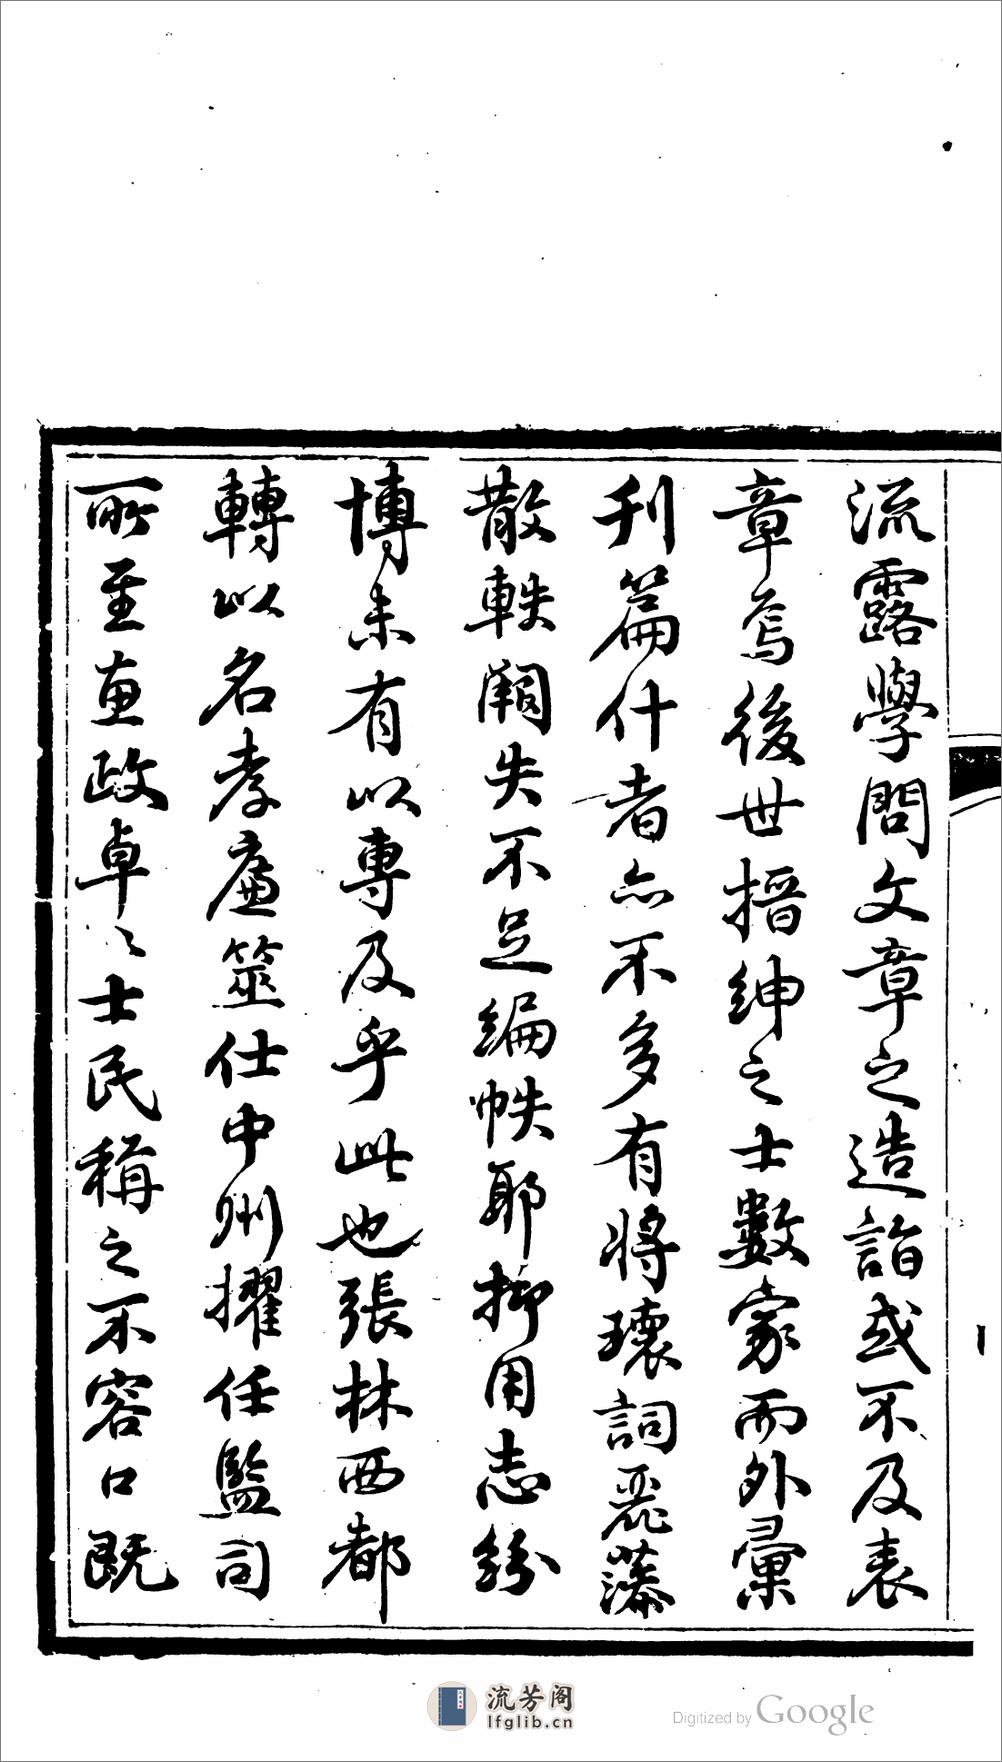 流露學問文章之造詣或不及表
章焉後世搢紳之士數家而外彙
刊篇什者亦不多有將瓌詞麗藻
散軼闕失不足編帙耶抑用志紛
博未有以專及乎此也張林西都
轉以名孝廉筮仕中州擢任監司
所至惠政卓〻士民稱之不容口既
流芳阁
lfglib.cn
Digitized by Google